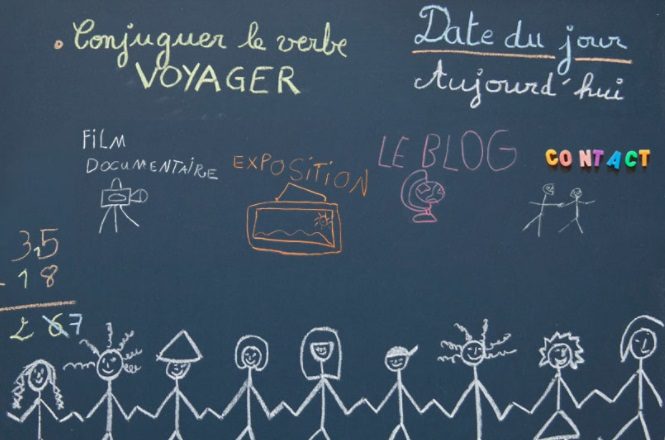 . Conjuguer le verbe
VOYAGER
Date du jour
Aujourd'hui
FiLM
DOCUMENTAiRE
EXPOSiTiON
LE BLOG
CONTACT
3,5
- 1 8
2 6 7